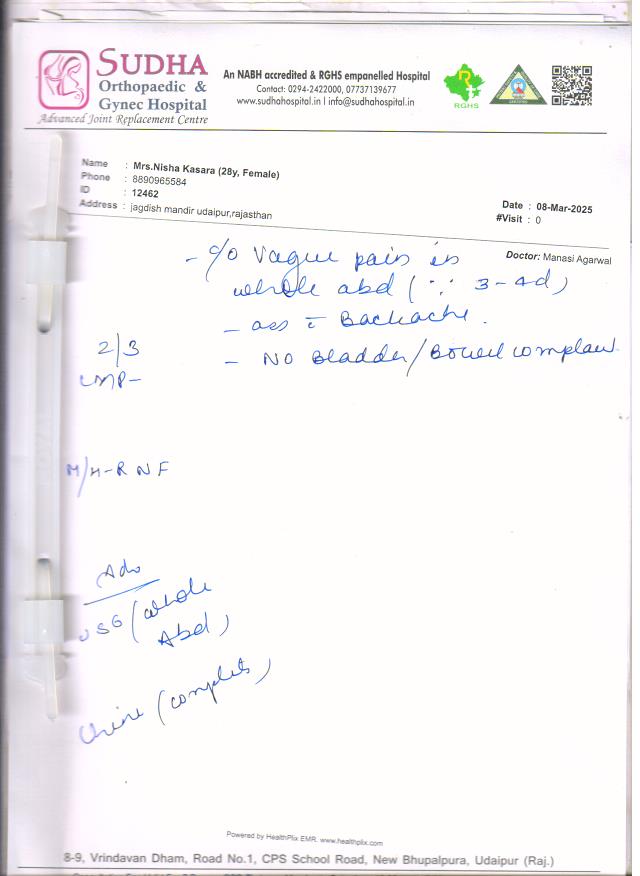 SUDHA
Orthopaedic &
Gynec Hospital
Advanced Joint Replacement Centre
An NABH accredited & RGHS empanelled Hospital
Contact: 0294-2422000, 07737139677
www.sudhahospital.in | info@sudhahospital.in
RGHS
Name : Mrs.Nisha Kasara (28y, Female)
Phone : 8890965584
ID : 12462
Address : jagdish mandir udaipur,rajasthan
Date : 08-Mar-2025
#Visit : 0
Doctor: Manasi Agarwal
- c/o Vague pain in
whole abd ( ∵ 3-4d )
- ass c̄ Backache.
2/3
LMP-
- No Bladder/Bowel complaint
M/H-R N F
Adv
USG (whole
Abd)
Urine (complete)
Powered by HealthPlix EMR. www.healthplix.com
8-9, Vrindavan Dham, Road No.1, CPS School Road, New Bhupalpura, Udaipur (Raj.)